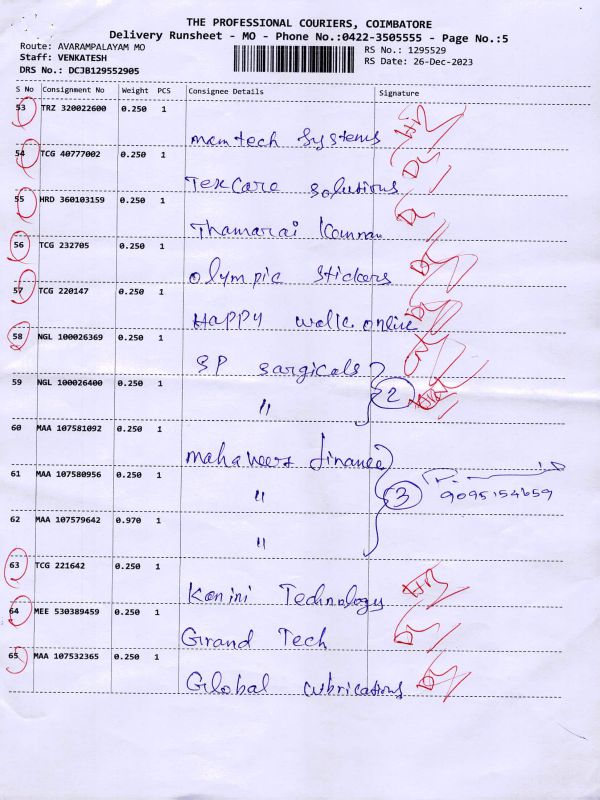 THE PROFESSIONAL COURIERS, COIMBATORE
Delivery Runsheet - MO - Phone No.:0422-3505555 - Page No.:5
Route: AVARAMPALAYAM MO RS No.: 1295529
Staff: VENKATESH RS Date: 26-Dec-2023
DRS No.: DCJB129552905
S No Consignment No Weight PCS Consignee Details Signature
53 TRZ 320022600 0.250 1
memtech Systems
54 TCG 40777002 0.250 1
Texcare solutions
55 HRD 360103159 0.250 1
Thamarai Kannan
56 TCG 232705 0.250 1
olympic stickers
57 TCG 220147 0.250 1
Happy walk online
58 NGL 100026369 0.250 1
SP sargicals
59 NGL 100026400 0.250 1
" 2
60 MAA 107581092 0.250 1
mahaveer finance
61 MAA 107580956 0.250 1
" 3 9095154659
62 MAA 107579642 0.970 1
"
63 TCG 221642 0.250 1
Konini Technology
64 MEE 530389459 0.250 1
Grand Tech
65 MAA 107532365 0.250 1
Global lubrications